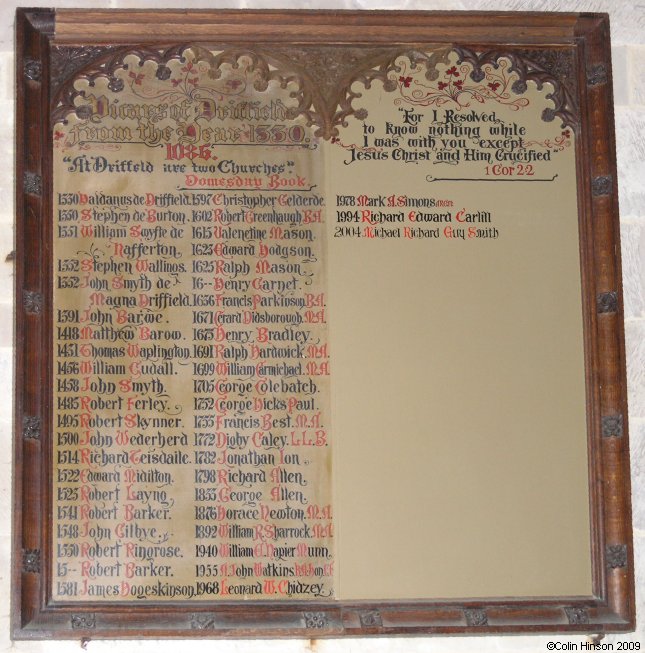 Vicars of Driffield
from the Year 1330.
1086.
"At Driffeld are two Churches".
Domesday Book.
1330 de Driffield.
1330 Stephen de Burton.
1331 William Smyfte de
Nafferton.
1332 Stephen Wallings.
1332 John Smyth de
Magna Driffield.
1391 John Barwe.
1418 Matthew Barow.
1431 Thomas Waplington.
1456 William Cudall.
1458 John Smyth.
1485 Robert Ferley.
1495 Robert Skynner.
1500 John Wederherd
1514 Richard Teisdaile.
1522 Edward Midilton.
1525 Robert Layng
1541 Robert Barker.
1548 John Gilbye.
1550 Robert Ringrose.
15-- Robert Barker.
1581 James Hogeskinson.
1597 Christopher Gelderde.
1602 Robert Greenhaugh. B.A.
1615 Valentine Mason.
1623 Edward Hodgson.
1625 Ralph Mason.
16-- Henry Carnet.
1656 Francis Parkinson. B.A.
1671 Gerard Didsborough. M.A.
1675 Henry Bradley.
1691 Ralph Hardwick. M.A.
1699 William Carmichael. M.A.
1705 George Colebatch.
1752 George Hicks Paul.
1755 Francis Best. M.A.
1772 Digby Caley. L.L.B.
1782 Jonathan Ion.
1798 Richard Allen.
1833 George Allen.
1876 Horace Newton. M.A.
1892 William R. Sharrock. M.A.
1940 William E. Napier Munn.
1955 John Watkins.
1968 Leonard W. Chidzey.
"For I Resolved
to know nothing while
I was with you except
Jesus Christ and Him Crucified"
1 Cor 2:2
1978 Mark A. Simons
1994 Richard Edward Carlill
2004 Michael Richard Guy Smith
©Colin Hinson 2009